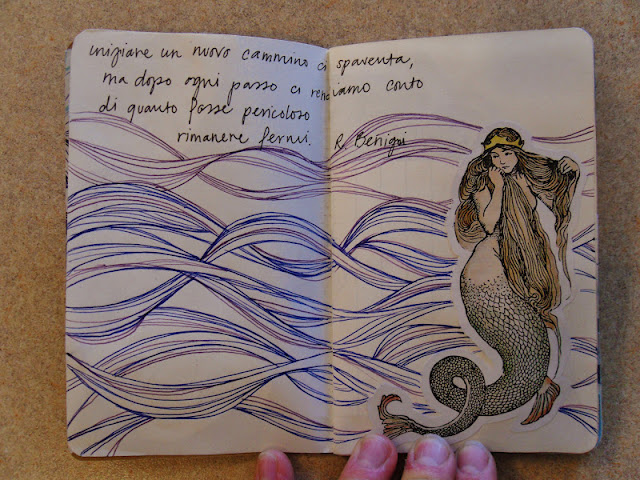 iniziare un nuovo cammino ci spaventa,
ma dopo ogni passo ci rendiamo conto
di quanto fosse pericoloso
rimanere fermi. R. Benigni